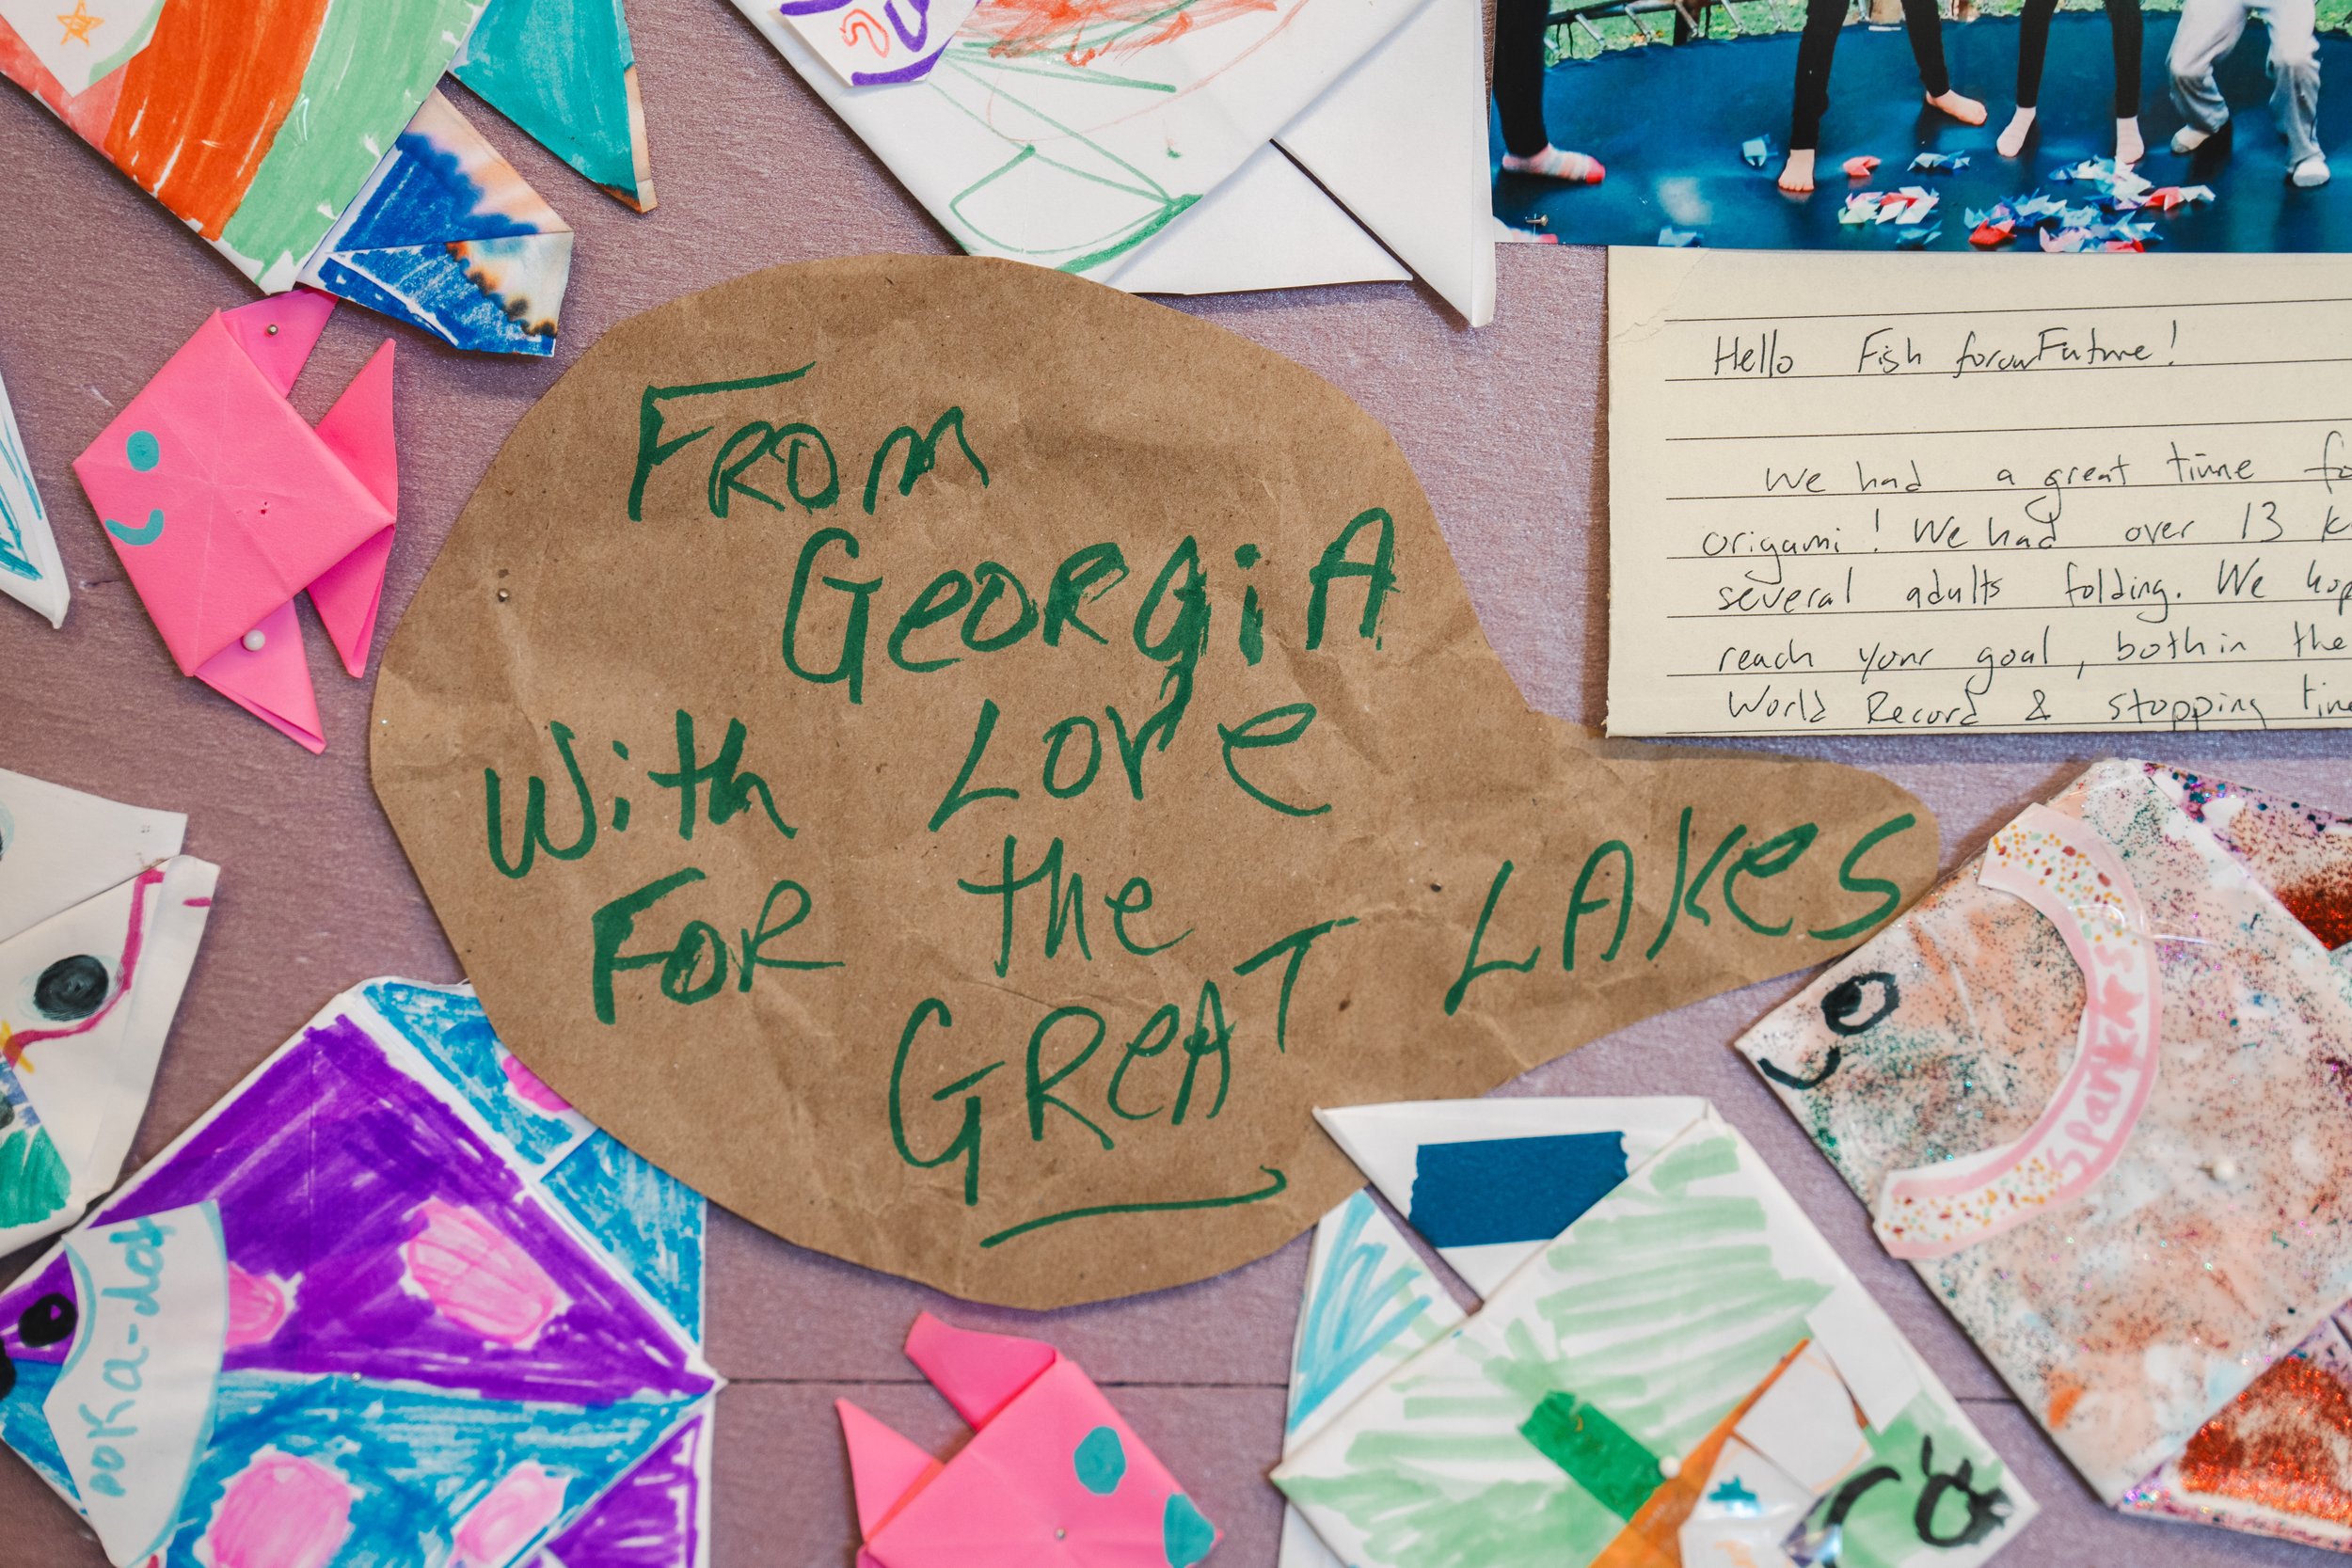 From
Georgia
With Love
For the
Great Lakes
Hello Fish forourFuture!
We had a great time fo
origami! We had over 13 k
several adults folding. We hop
reach your goal, both in the
World Record & stopping line
Sparkks
poka-dot